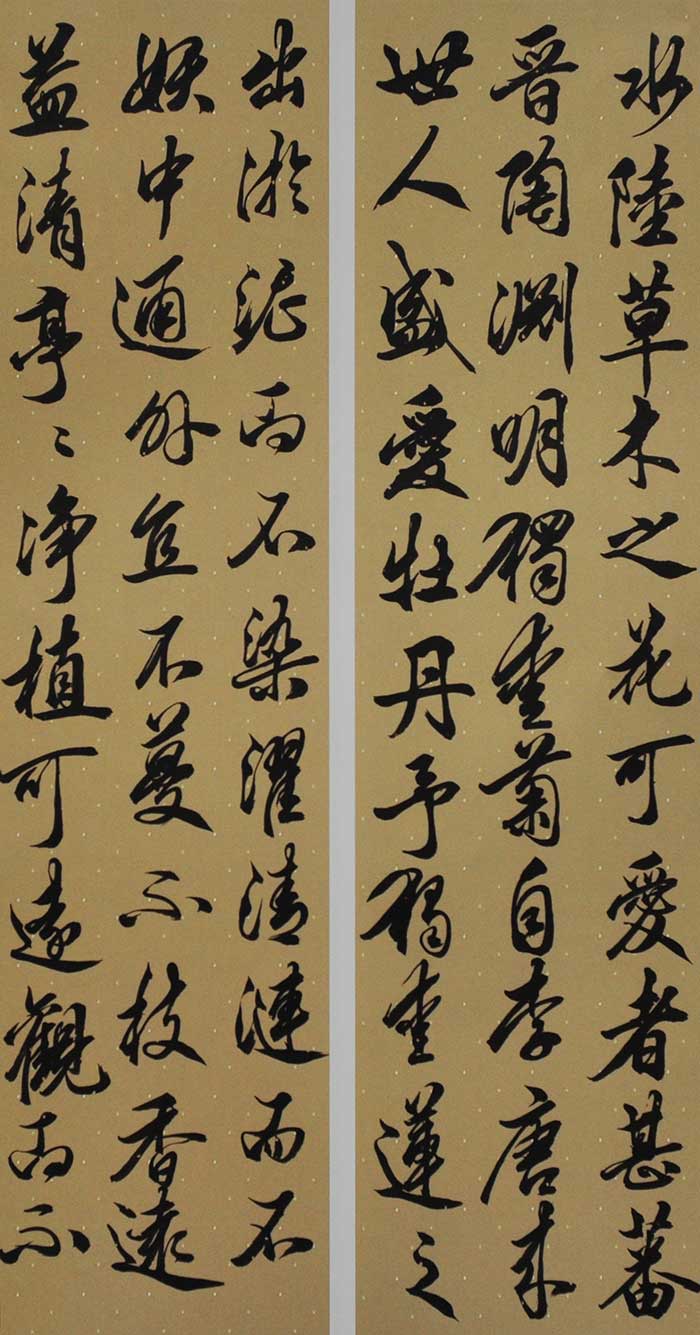 水陸草木之花可愛者甚蕃
晋陶淵明獨愛菊自李唐来
世人盛愛牡丹予獨愛蓮之
出淤泥而不染濯清漣而不
妖中通外直不蔓不枝香遠
益清亭〻净植可遠觀而不